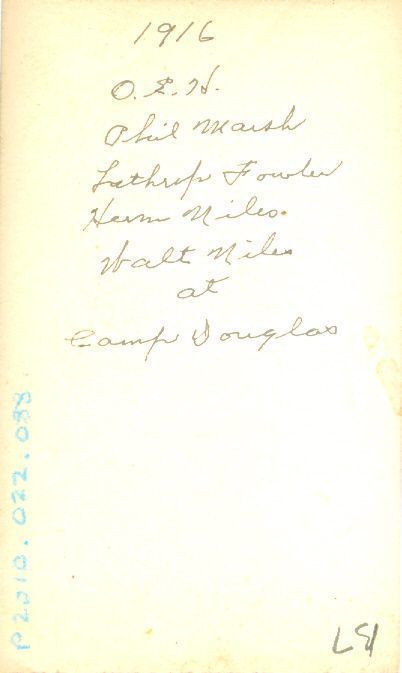 1916
O. E. H.
Phil Marsh
Lathrop Fowler
Herm Niles.
Walt Niles
at
Camp Douglas
P2010.022.088